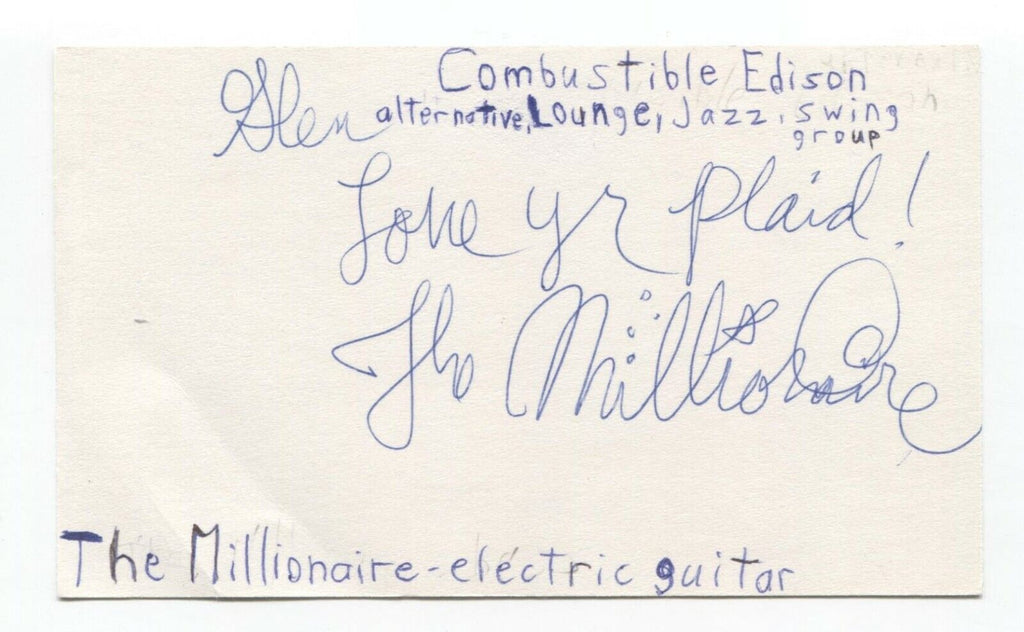 Combustible Edison
alternative, Lounge, Jazz, swing
group
Glen
Love yr plaid!
The Millionaire
The Millionaire-electric guitar